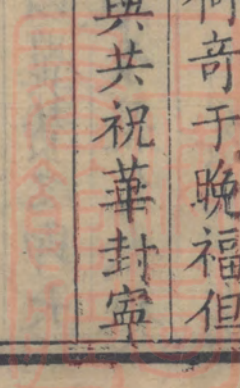 奇于晚福但
與共祝華封寜